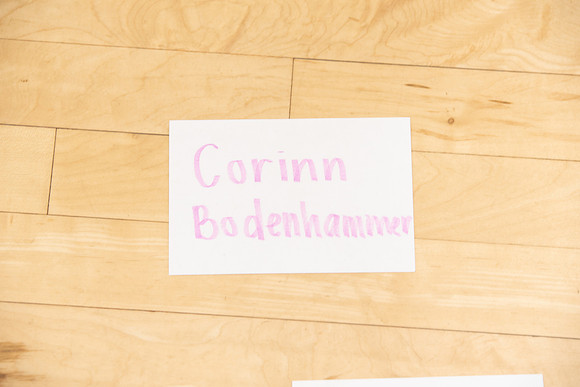 Corinn
Bodenhammer